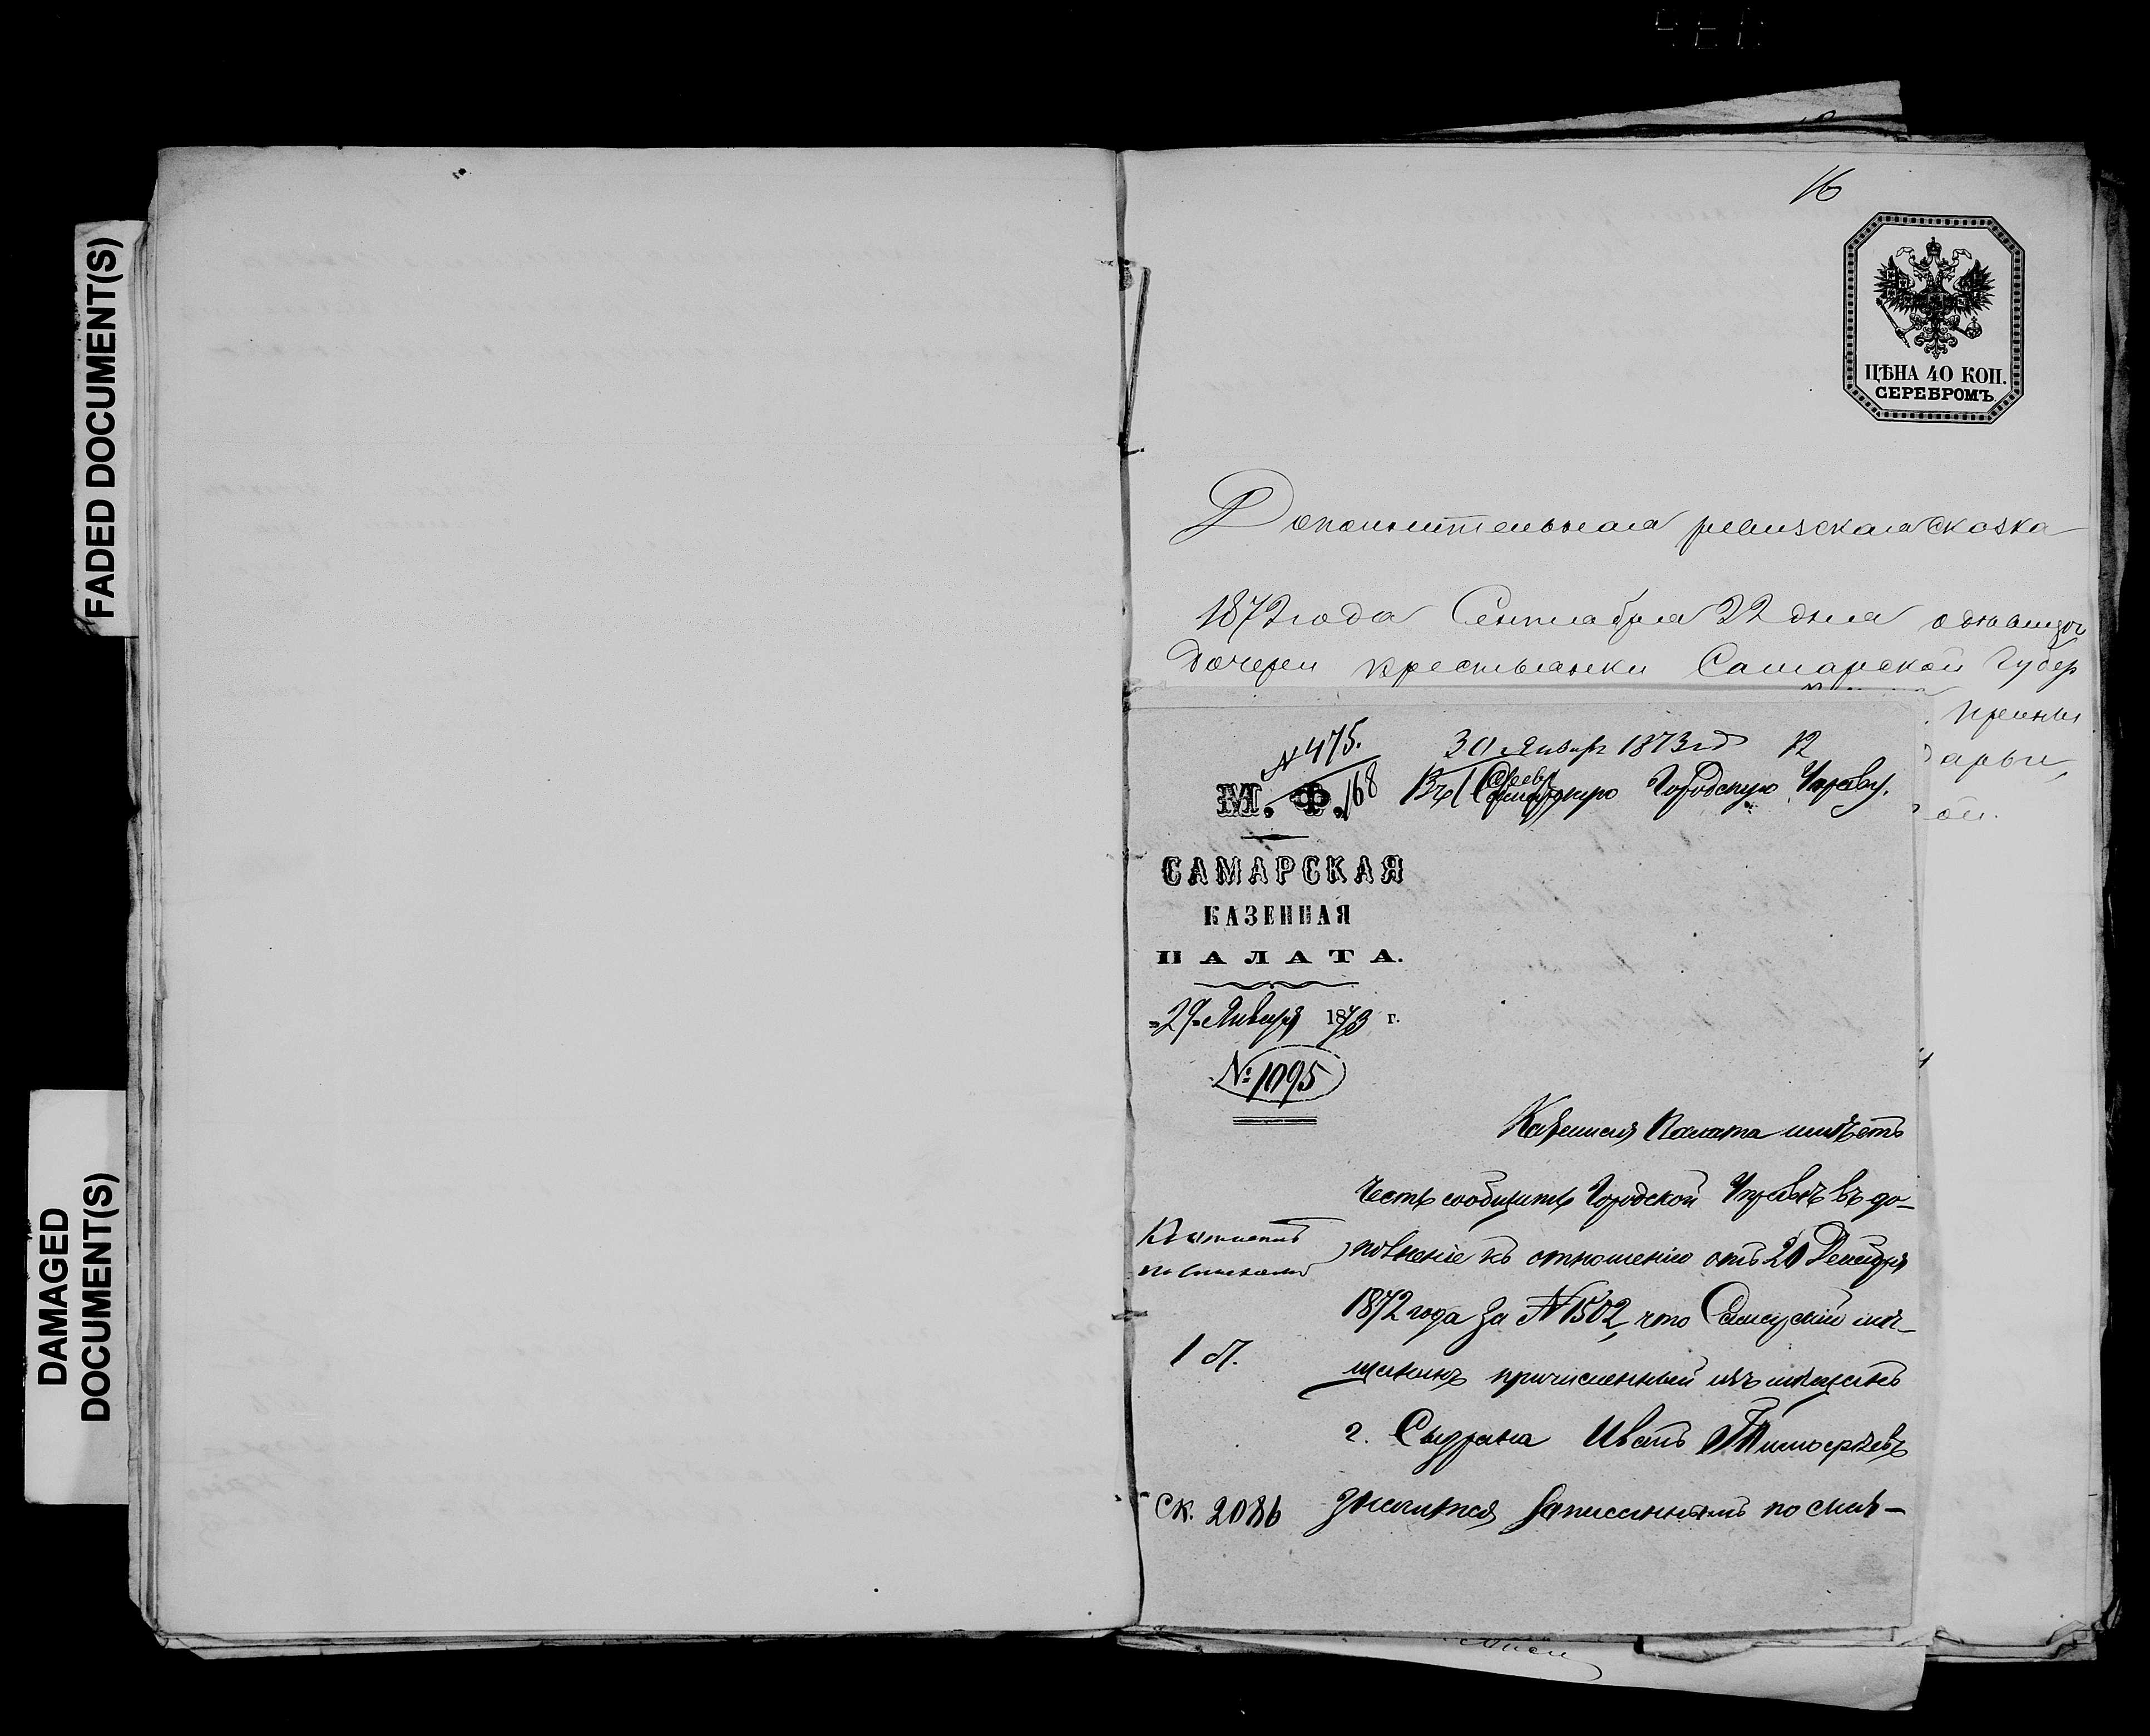 FADED DOCUMENT(S)
DAMAGED
DOCUMENT(S)
16
ЦѢНА 40 КОП.
СЕРЕБРОМЪ.
Дополнительная ревизская сказка
1872 года Сентября 22 дня о
дочери крестьянки Самарской Губер
дарьи,
ой.
№ 475.
168
30 Январ 1873 год 12
М. Ф.
Въ Городскую Управу.
САМАРСКАЯ
КАЗЕННАЯ
ПАЛАТА.
"29" Января 1873 г.
№ 1095
Казенная Палата имѣетъ
честь сообщить Городской Управѣ въ до-
полненіе къ отношенію отъ 20 Декабря
1872 года за № 1502, что Самарскій мѣ-
щанинъ причисленный изъ мѣщанъ
г. Сызрана Иванъ Тимофѣевъ
значится записаннымъ по
1 ст.
ск. 2086